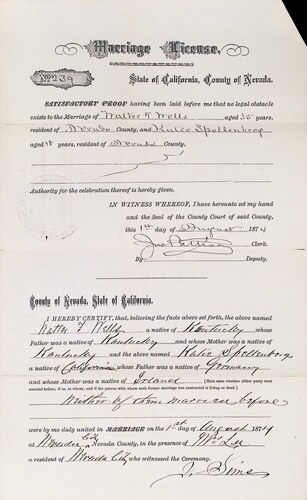 Marriage License,
No 239
State of California, County of Nevada.
SATISFACTORY PROOF having been laid before me that no legal obstacle
exists to the Marriage of Walter T Wells aged 35 years,
resident of Nevada County, and Katie Spellenberg
aged 18 years, resident of Nevada County.
Authority for the celebration thereof is hereby given.
IN WITNESS WHEREOF, I have hereunto set my hand
and the Seal of the County Court of said County,
this 1st day of August 1874
Clerk.
By Deputy.
County of Nevada, State of California.
I HEREBY CERTIFY, that, believing the facts above set forth, the above named
Walter T Wells a native of Kentucky whose
Father was a native of Kentucky and whose Mother was a native of
Kentucky and the above named Katie Spellenberg
a native of California whose Father was a native of Germany
and whose Mother was a native of Ireland
Neither of them married before
were by me duly united in MARRIAGE on the 1st day of August 1874
at Nevada City Nevada County, in the presence of McLee
a resident of Nevada City who witnessed the Ceremony.
J. Sims